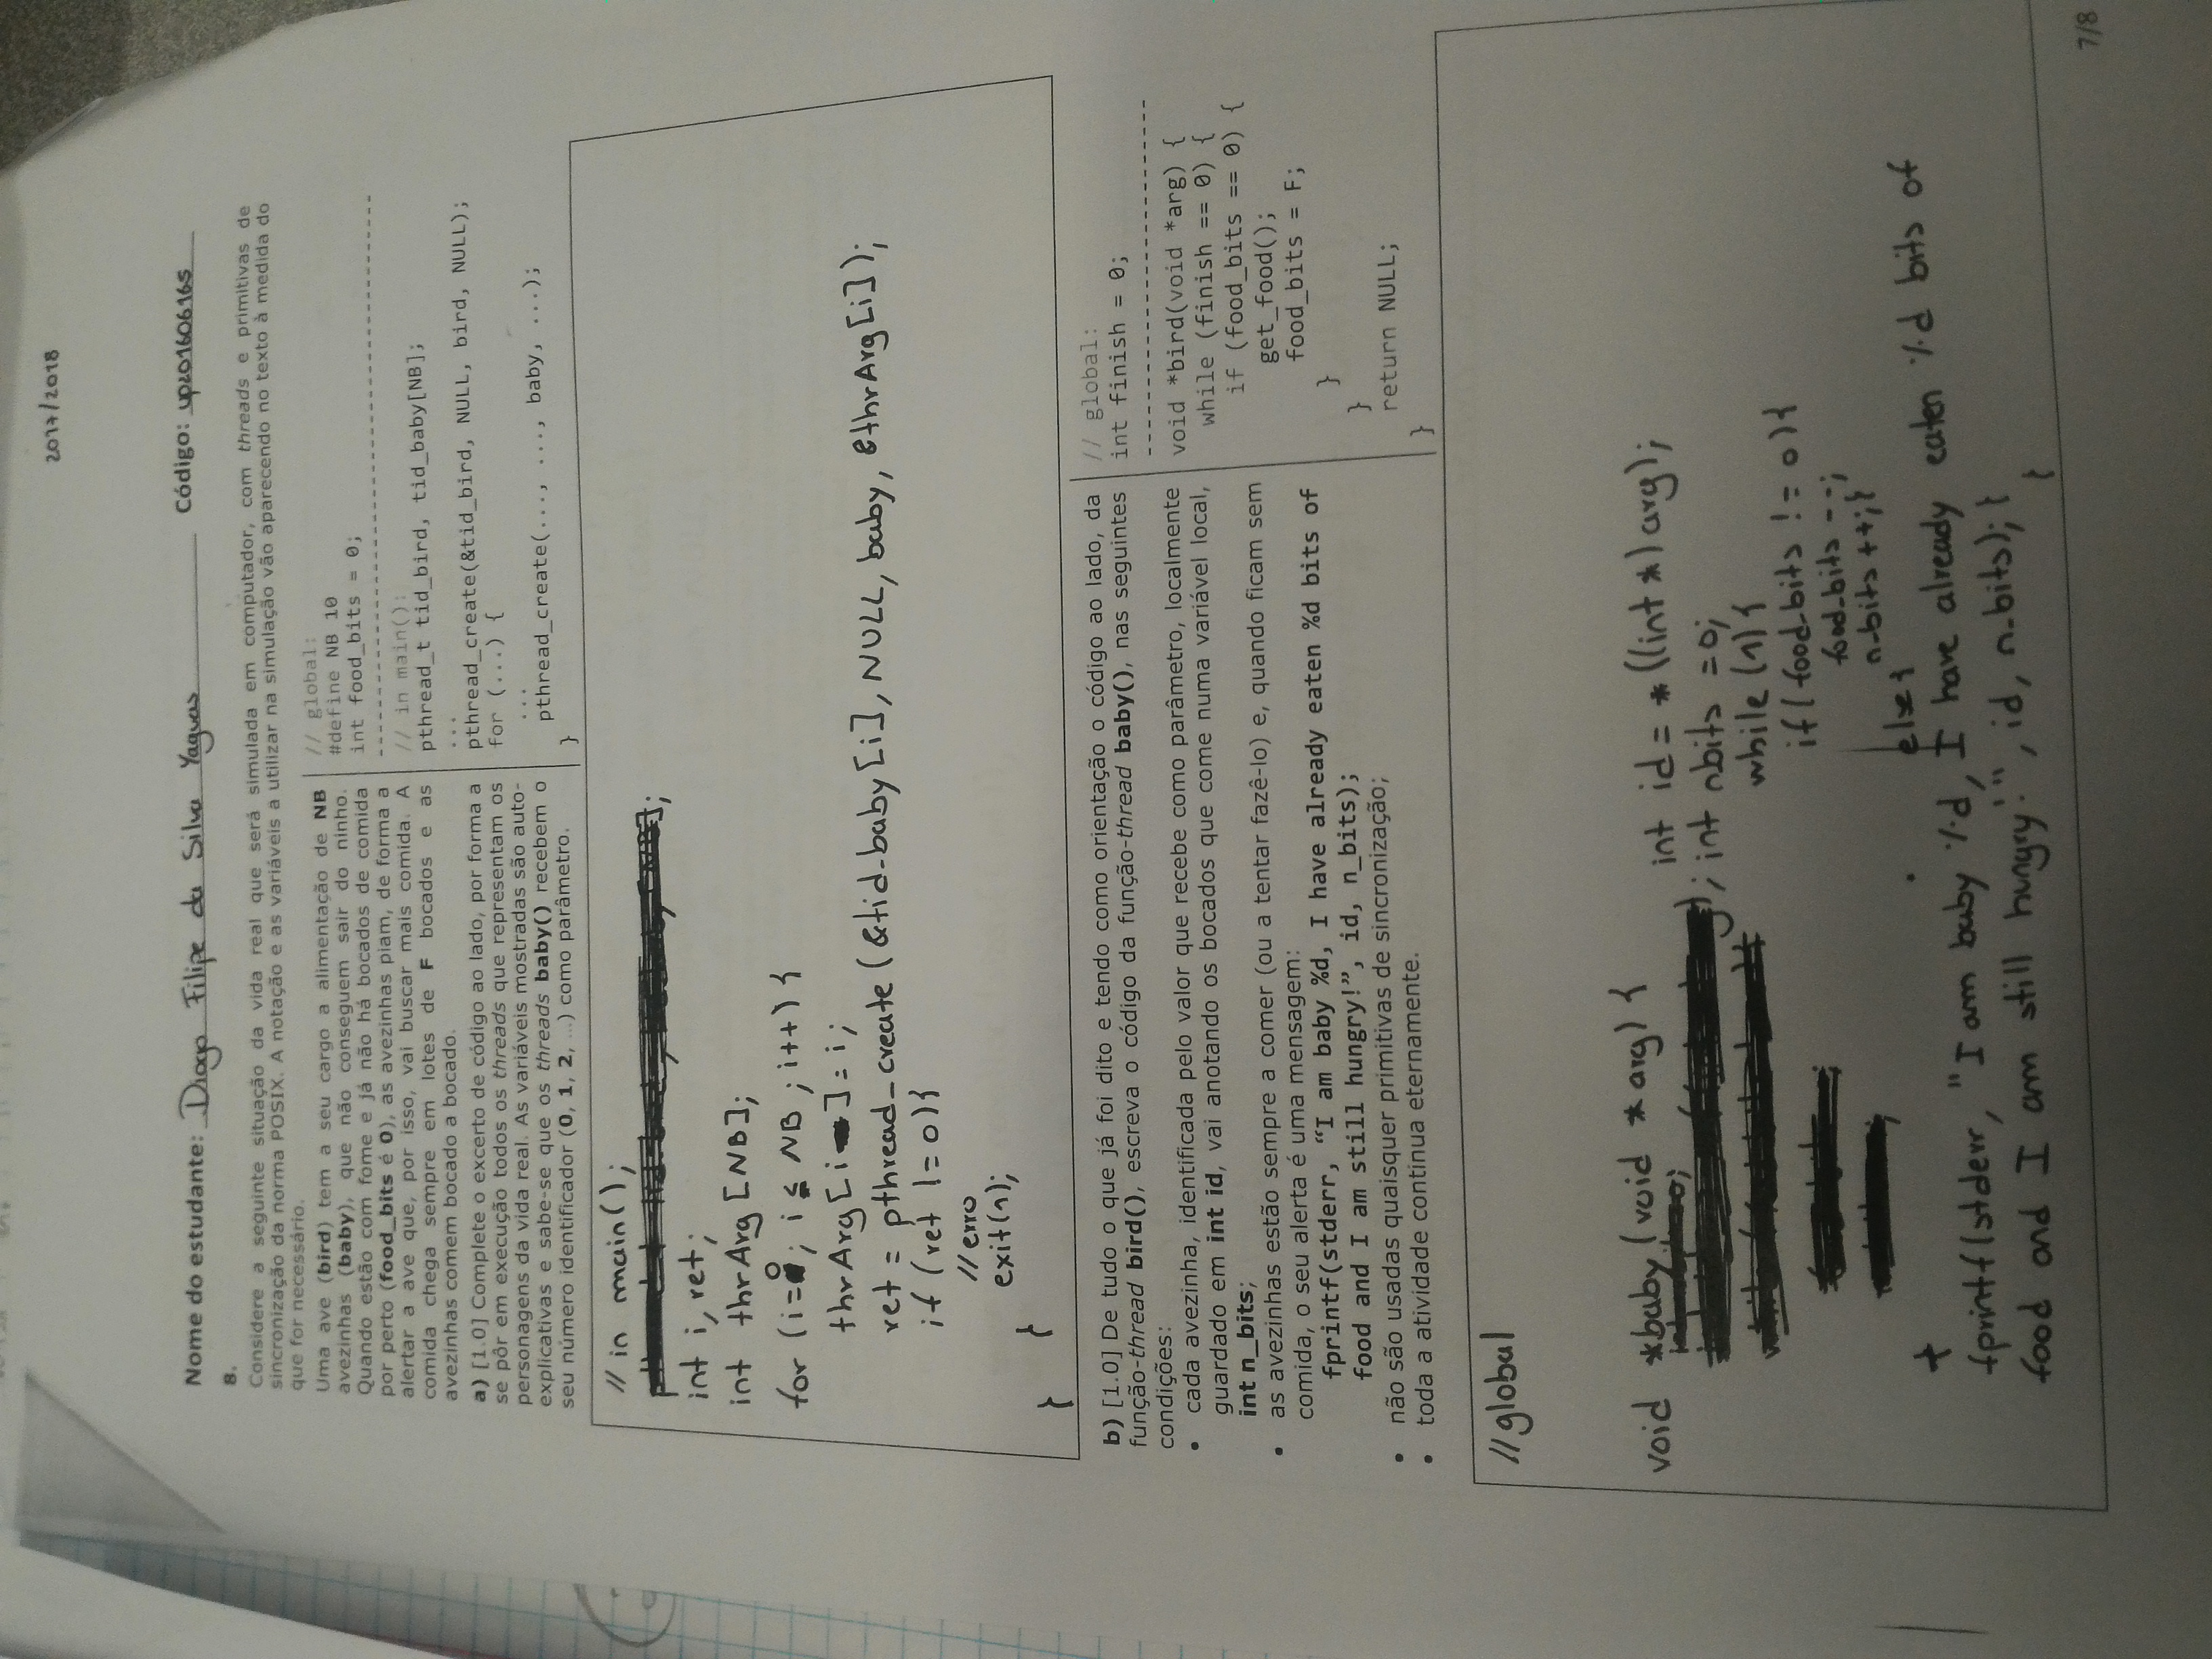 2017/2018
Nome do estudante: Diogo Filipe da Silva Yaguas Código: up201606165
8.
Considere a seguinte situação da vida real que será simulada em computador, com threads e primitivas de
sincronização da norma POSIX. A notação e as variáveis a utilizar na simulação vão aparecendo no texto à medida do
que for necessário.
Uma ave (bird) tem a seu cargo a alimentação de NB
avezinhas (baby), que não conseguem sair do ninho.
Quando estão com fome e já não há bocados de comida
por perto (food_bits é 0), as avezinhas piam, de forma a
alertar a ave que, por isso, vai buscar mais comida. A
comida chega sempre em lotes de F bocados e as
avezinhas comem bocado a bocado.
a) [1.0] Complete o excerto de código ao lado, por forma a
se pôr em execução todos os threads que representam os
personagens da vida real. As variáveis mostradas são auto-
explicativas e sabe-se que os threads baby() recebem o
seu número identificador (0, 1, 2, ...) como parâmetro.
// global:
#define NB 10
int food_bits = 0;
// in main():
pthread_t tid_bird, tid_baby[NB];
...
pthread_create(&tid_bird, NULL, bird, NULL);
for (...) {
...
pthread_create(..., ..., baby, ...);
}
// in main();
int i, ret;
int thrArg [NB];
for (i=0; i ≤ NB ; i++) {
thrArg [i] = i;
ret = pthread_create (&tid_baby[i], NULL, baby, &thrArg[i]);
if (ret != 0){
// erro
exit(1);
}
}
b) [1.0] De tudo o que já foi dito e tendo como orientação o código ao lado, da
função-thread bird(), escreva o código da função-thread baby(), nas seguintes
condições:
• cada avezinha, identificada pelo valor que recebe como parâmetro, localmente
guardado em int id, vai anotando os bocados que come numa variável local,
int n_bits;
• as avezinhas estão sempre a comer (ou a tentar fazê-lo) e, quando ficam sem
comida, o seu alerta é uma mensagem:
fprintf(stderr, “I am baby %d, I have already eaten %d bits of
food and I am still hungry!”, id, n_bits);
• não são usadas quaisquer primitivas de sincronização;
• toda a atividade continua eternamente.
// global:
int finish = 0;
void *bird(void *arg) {
while (finish == 0) {
if (food_bits == 0) {
get_food();
food_bits = F;
}
}
return NULL;
}
// global
void *baby (void * arg) {
int id = * ((int *) arg);
int nbits = 0;
while (1) {
if ( food_bits != 0 ) {
food_bits --;
n_bits ++; }
else {
fprintf(stderr, "I am baby %d, I have already eaten %d bits of
food and I am still hungry!", id, n_bits); }
}
7/8